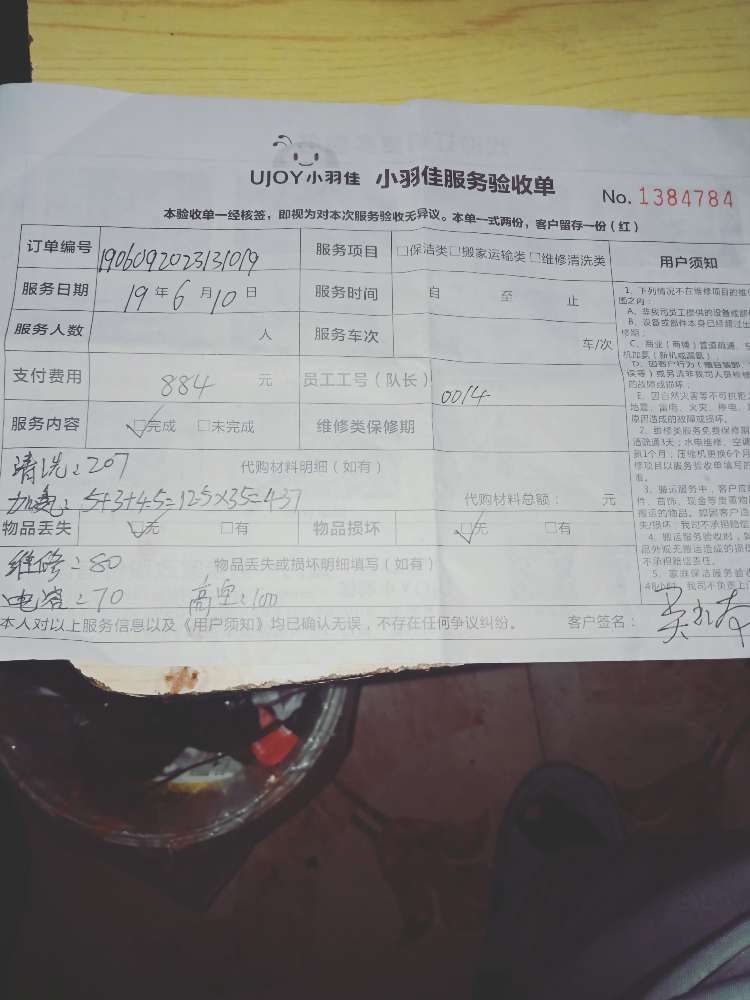 UJOY小羽佳 小羽佳服务验收单 No. 1384784
本验收单一经核签，即视为对本次服务验收无异议。本单一式两份，客户留存一份（红）
订单编号 190609202313109 服务项目 □保洁类□搬家运输类□维修清洗类 用户须知
服务日期 19年6月10日 服务时间 自 至 止
服务人数 人 服务车次 车/次
支付费用 884 元 员工工号（队长） 0014
服务内容 ☑完成 □未完成 维修类保修期
清洗：207 代购材料明细（如有）
加氟：5+3+4.5=12.5×35=437 代购材料总额： 元
物品丢失 ☑无 □有 物品损坏 ☑无 □有
维修：80 物品丢失或损坏明细填写（如有）
电容：70 高空：100
本人对以上服务信息以及《用户须知》均已确认无误，不存在任何争议纠纷。 客户签名：
1、下列情况不在维修项目的维
围之内：
A、非我司员工提供的设备或部
B、设备或部件本身已经超过出
修期；
C、商业（商铺）管道疏通、空
机加氟（新机或漏氟）；
误等）或另请非我司人员检修
的故障或损坏；
E、因自然灾害等不可抗拒
地震、雷电、火灾、停电、
原因造成的故障或损坏。
2、维修类服务免费保修期
通疏通3天；水电维修、空调
氟1个月；压缩机更换6个月
修项目以服务验收单填写的
准。
3、搬运服务中，客户应
件、首饰、现金等贵重物
搬运的物品。如因客户造
失/损坏，我司不承担赔偿
4、搬运服务验收时，如
品外观无搬运造成的损
不承担赔偿责任。
5、家庭保洁服务验收
48小时，我司不负责上门